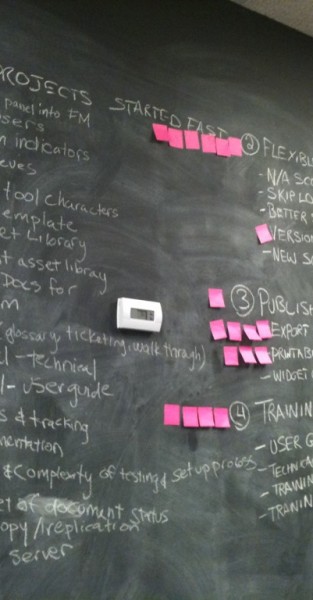 PROJECTS
panel into FM
indicators
tool characters
template
Library
asset libray
Docs for
glossary ticketing, walk through)
- technical
- userguide
& tracking
& Complexity of testing & setup process
of document status
copy/replication
server
STARTED FAST
② FLEXIBL
- N/A SCO
- SKIP LO
- BETTER
VERSION
- NEW SC
③ PUBLISH
EXPORT
PRINTAB
- WIDGET
④ TRAININ
- USER G
- TECHNICAL
- TRAININ
- TRAININ